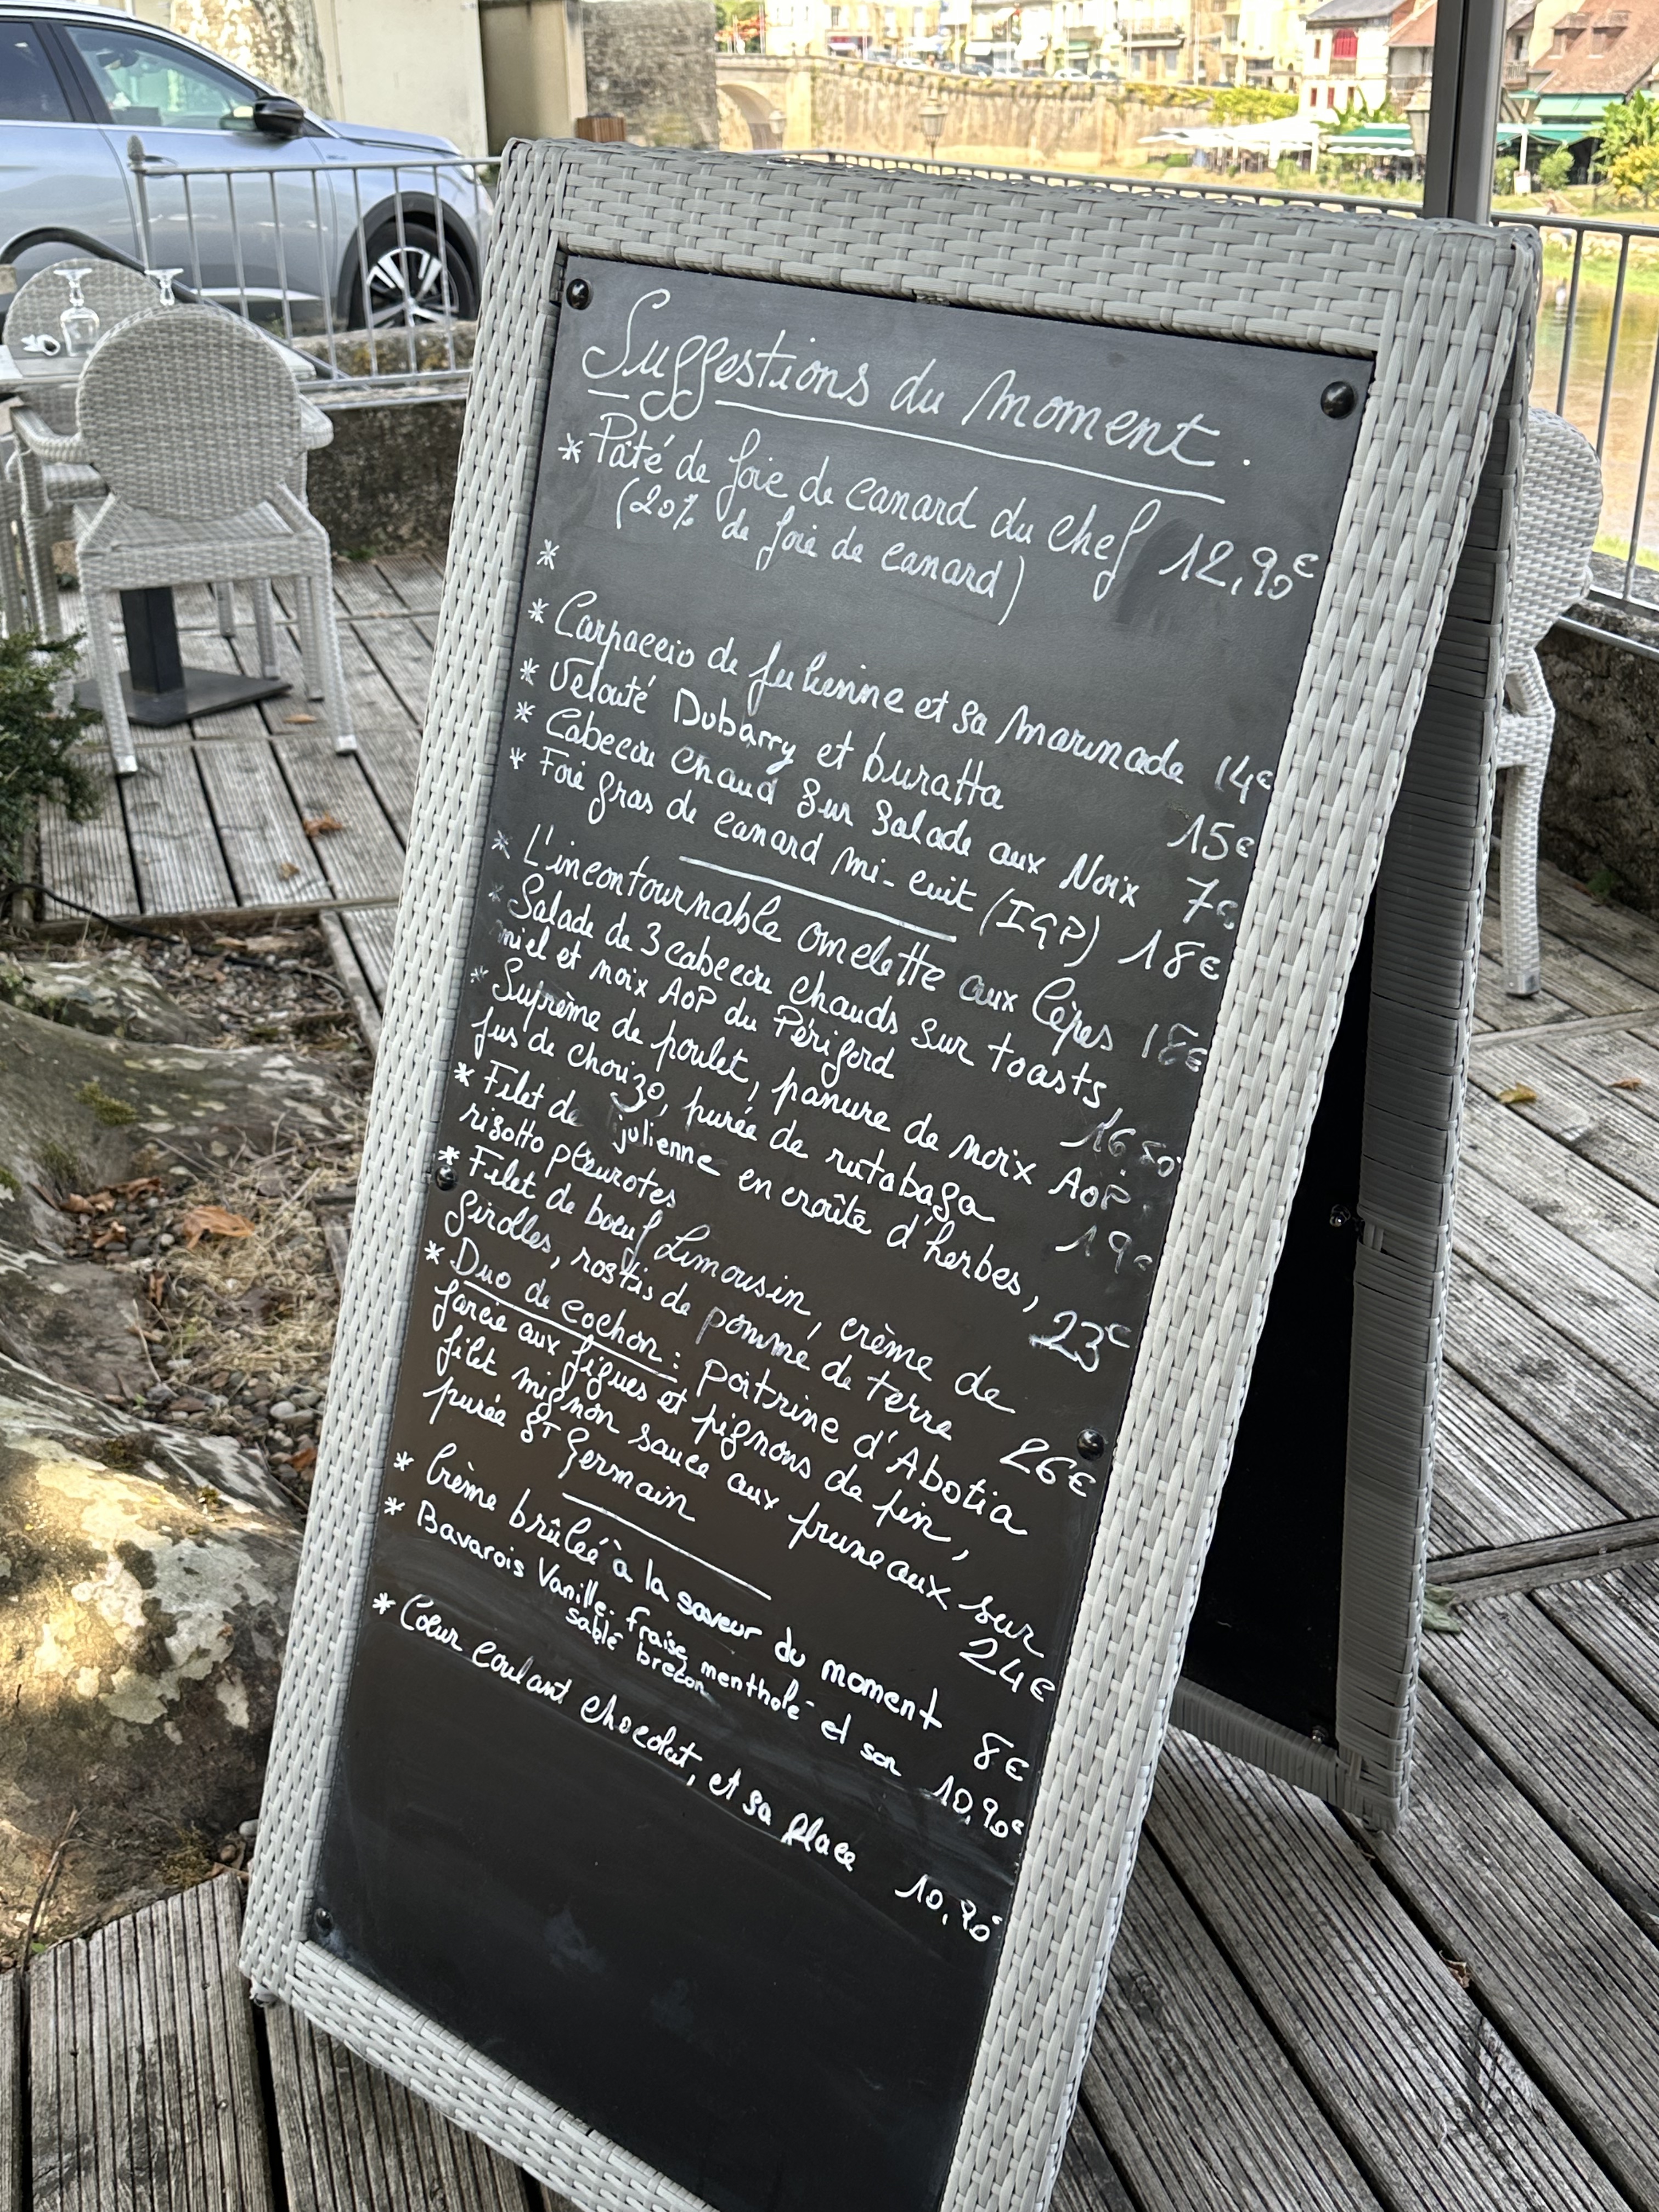 Suggestions du moment.
* Pâté de foie de canard du chef 12,90€
(20% de foie de canard)
*
* Carpaccio de Julienne et sa marinade 14€
* Velouté Dubarry et buratta 15€
* Cabecou chaud sur salade aux Noix 7€
* Foie gras de canard mi-cuit (IGP) 18€
* L'incontournable omelette aux Cèpes 18€
* Salade de 3 cabecou chauds sur toasts,
miel et noix AOP du Périgord 16,50
* Suprême de poulet, panure de noix AOP,
jus de chorizo, purée de rutabaga 19€
* Filet de julienne en croûte d'herbes,
risotto pleurotes 23€
* Filet de boeuf Limousin, crème de
girolles, rostis de pomme de terre 26€
* Duo de cochon : poitrine d'Abotia
farcie aux figues et pignons de pin,
filet mignon sauce aux pruneaux sur
purée St Germain 24€
* Crème brûlée à la saveur du moment 8€
* Bavarois Vanille. fraise mentholé et son
sablé breton 10,90€
* Coeur coulant chocolat, et sa glace 10,90€